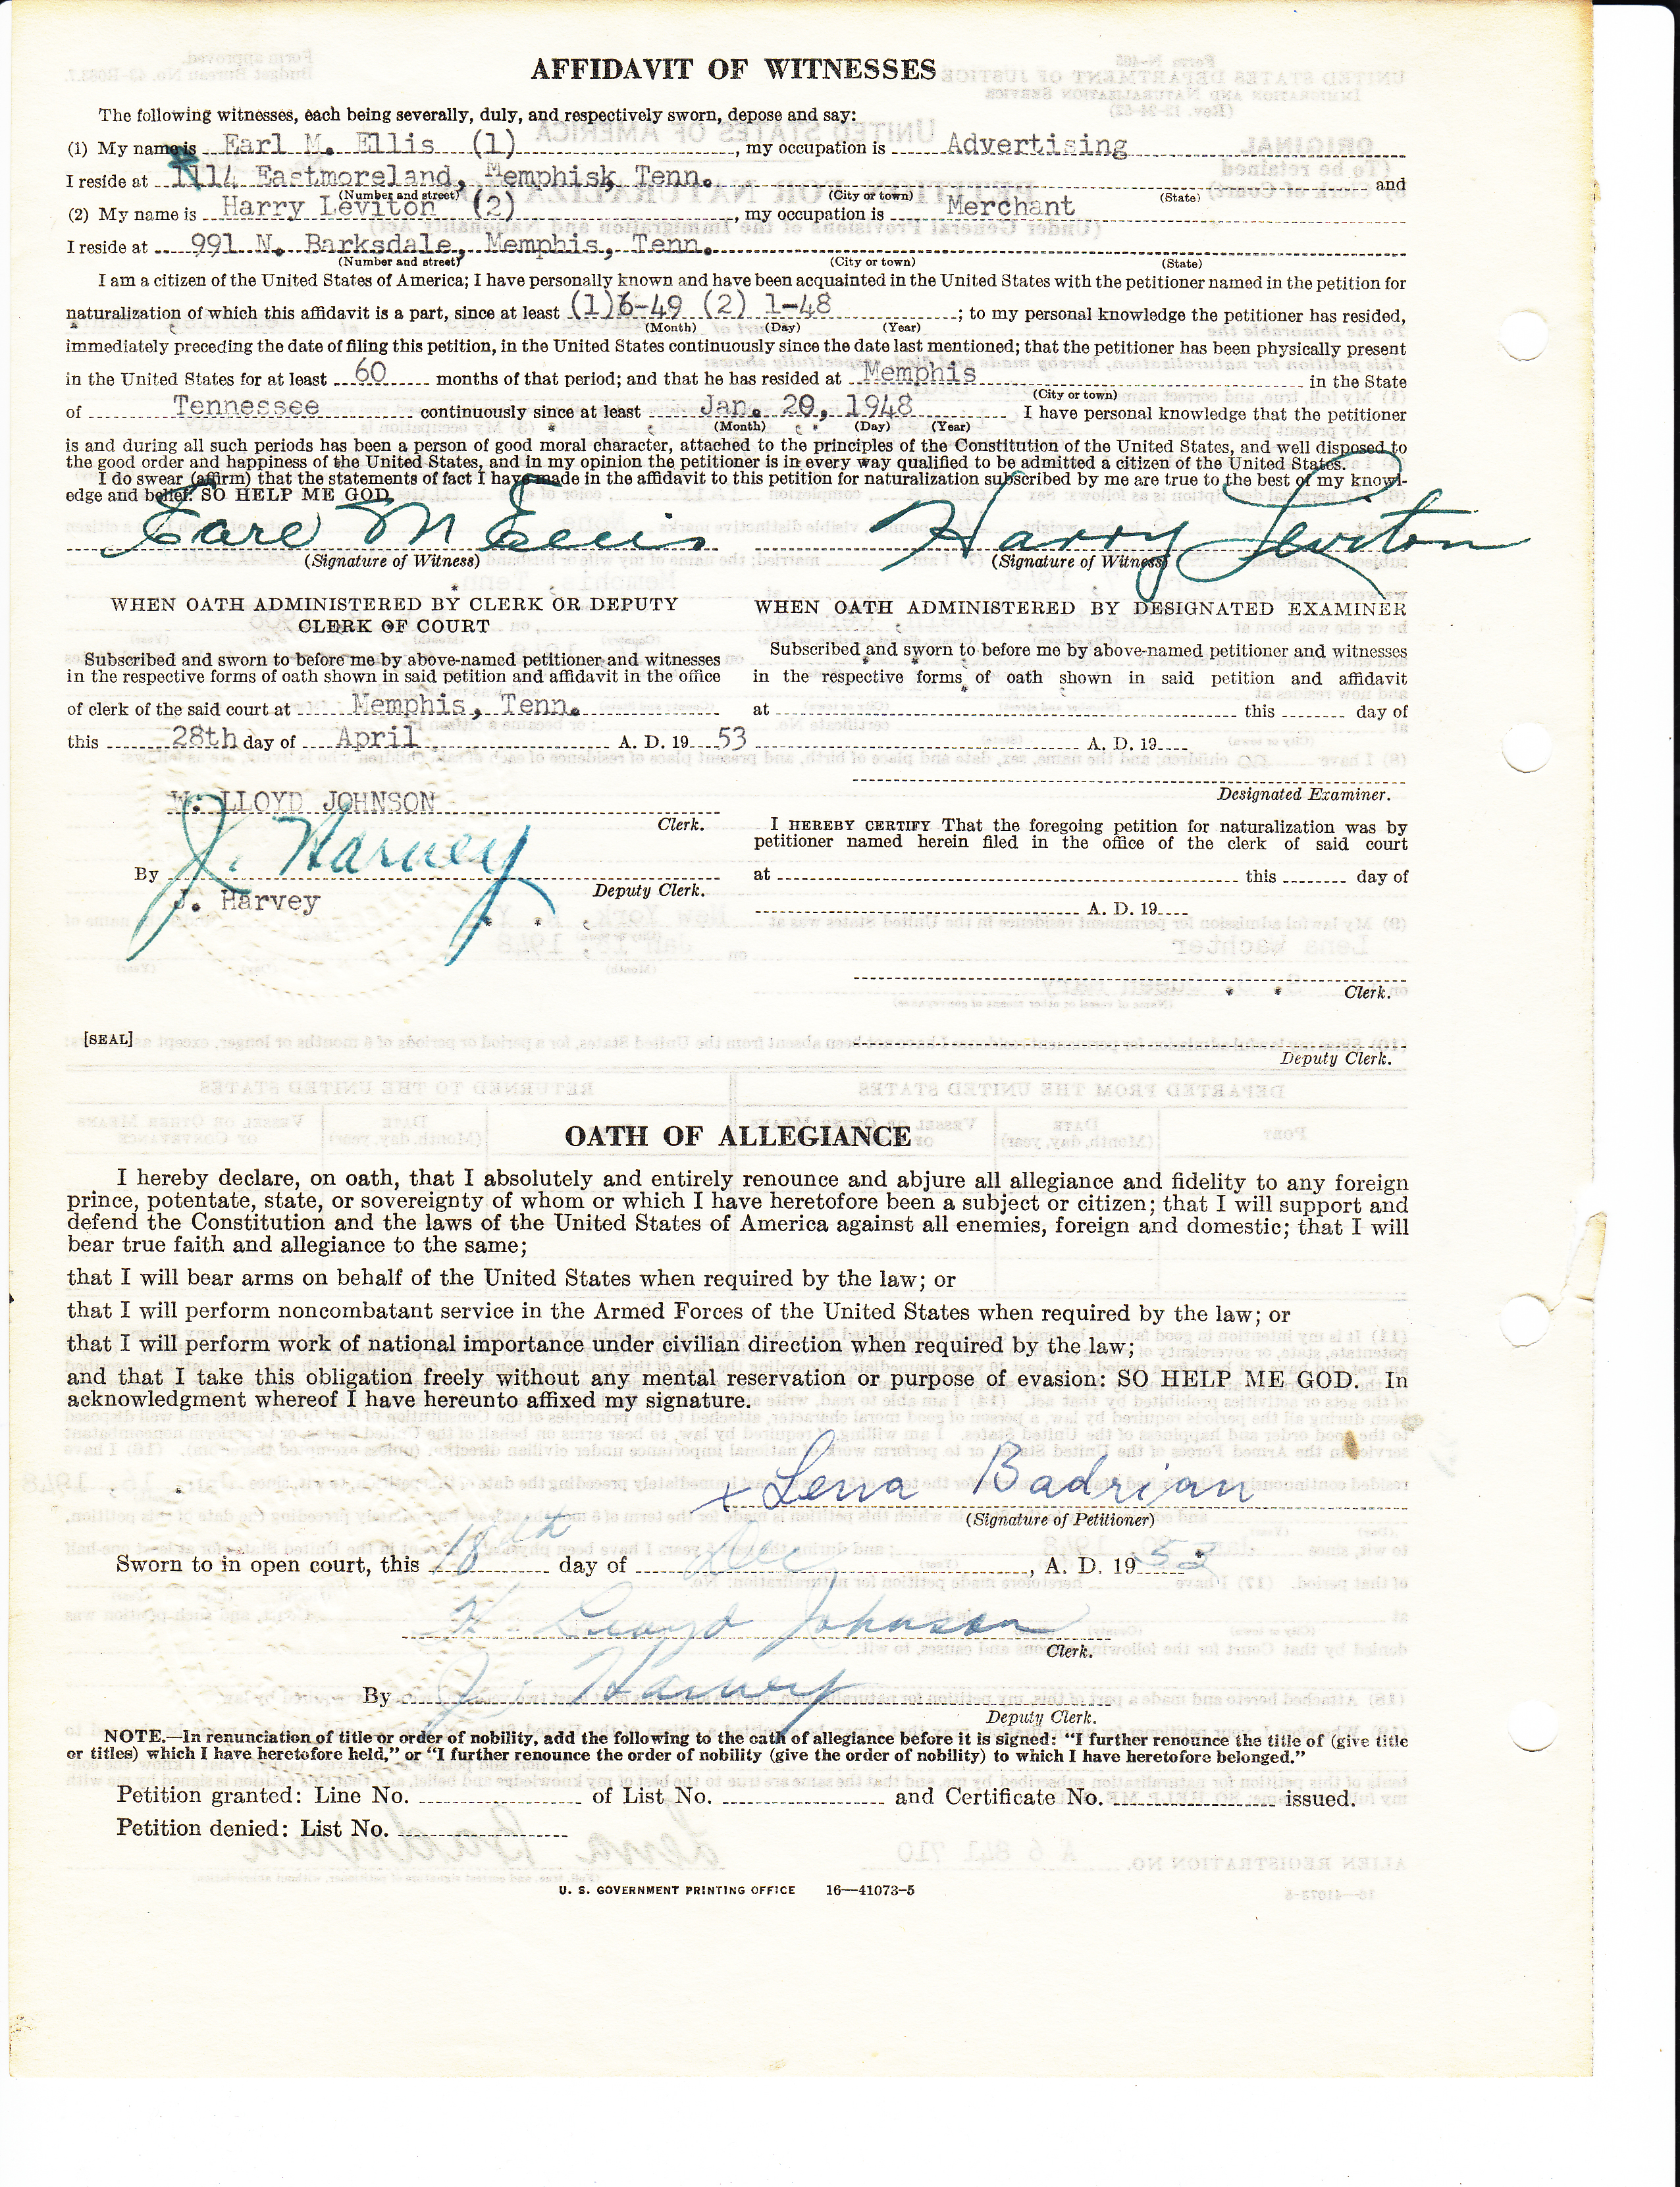 AFFIDAVIT OF WITNESSES
The following witnesses, each being severally, duly, and respectively sworn, depose and say:
(1) My name is Earl M. Ellis (1), my occupation is Advertising
I reside at 1114 Eastmoreland, Memphisk Tenn. and
(Number and street) (City or town) (State)
(2) My name is Harry Leviton (2), my occupation is Merchant
I reside at 991 N. Barksdale, Memphis, Tenn.
(Number and street) (City or town) (State)
I am a citizen of the United States of America; I have personally known and have been acquainted in the United States with the petitioner named in the petition for
naturalization of which this affidavit is a part, since at least (1)6-49 (2) 1-48; to my personal knowledge the petitioner has resided,
(Month) (Day) (Year)
immediately preceding the date of filing this petition, in the United States continuously since the date last mentioned; that the petitioner has been physically present
in the United States for at least 60 months of that period; and that he has resided at Memphis in the State
(City or town)
of Tennessee continuously since at least Jan. 20, 1948 I have personal knowledge that the petitioner
(Month) (Day) (Year)
is and during all such periods has been a person of good moral character, attached to the principles of the Constitution of the United States, and well disposed to
the good order and happiness of the United States, and in my opinion the petitioner is in every way qualified to be admitted a citizen of the United States.
I do swear (affirm) that the statements of fact I have made in the affidavit to this petition for naturalization subscribed by me are true to the best of my knowl-
edge and belief. SO HELP ME GOD.
Earl M Ellis Harry Leviton
(Signature of Witness) (Signature of Witness)
WHEN OATH ADMINISTERED BY CLERK OR DEPUTY
CLERK OF COURT
Subscribed and sworn to before me by above-named petitioner and witnesses
in the respective forms of oath shown in said petition and affidavit in the office
of clerk of the said court at Memphis, Tenn.
this 28th day of April A. D. 19 53
W. LLOYD JOHNSON
Clerk.
By J. Harvey
Deputy Clerk.
J. Harvey
[SEAL]
WHEN OATH ADMINISTERED BY DESIGNATED EXAMINER
Subscribed and sworn to before me by above-named petitioner and witnesses
in the respective forms of oath shown in said petition and affidavit
at this day of
A. D. 19
Designated Examiner.
I HEREBY CERTIFY That the foregoing petition for naturalization was by
petitioner named herein filed in the office of the clerk of said court
at this day of
A. D. 19
Clerk.
Deputy Clerk.
OATH OF ALLEGIANCE
I hereby declare, on oath, that I absolutely and entirely renounce and abjure all allegiance and fidelity to any foreign
prince, potentate, state, or sovereignty of whom or which I have heretofore been a subject or citizen; that I will support and
defend the Constitution and the laws of the United States of America against all enemies, foreign and domestic; that I will
bear true faith and allegiance to the same;
that I will bear arms on behalf of the United States when required by the law; or
that I will perform noncombatant service in the Armed Forces of the United States when required by the law; or
that I will perform work of national importance under civilian direction when required by the law;
and that I take this obligation freely without any mental reservation or purpose of evasion: SO HELP ME GOD. In
acknowledgment whereof I have hereunto affixed my signature.
x Lena Badrian
(Signature of Petitioner)
Sworn to in open court, this 18th day of Dec, A. D. 19 53
W Lloyd Johnson
Clerk.
By J. Harvey
Deputy Clerk.
NOTE.—In renunciation of title or order of nobility, add the following to the oath of allegiance before it is signed: "I further renounce the title of (give title
or titles) which I have heretofore held," or "I further renounce the order of nobility (give the order of nobility) to which I have heretofore belonged."
Petition granted: Line No. of List No. and Certificate No. issued.
Petition denied: List No.
U. S. GOVERNMENT PRINTING OFFICE 16—41073-5